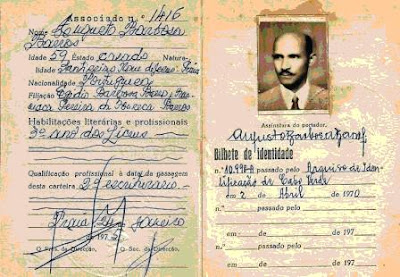 Associado n.º 1416
Nome Augusto Barbosa
Barros
Idade 59 Estado casado Natura-
lidade
Nacionalidade Portuguesa
Filiação Barbosa Barros e
Pereira da Fonseca Barros
Habilitações literárias e profissionais
3º ano dos Liceus
Qualificação profissional à data da passagem
desta carteira 2º escriturário
Praia
197
O Pres. da Direcção, O Sec. da Direcção,
Assinatura do portador,
Augusto Barbosa Barros
Bilhete de identidade
n.º passado pelo Arquivo de Iden-
tificação de Cabo Verde
em 2 de Abril de 1970
n.º passado pelo
em de de 197
n.º passado pelo
em de de 197